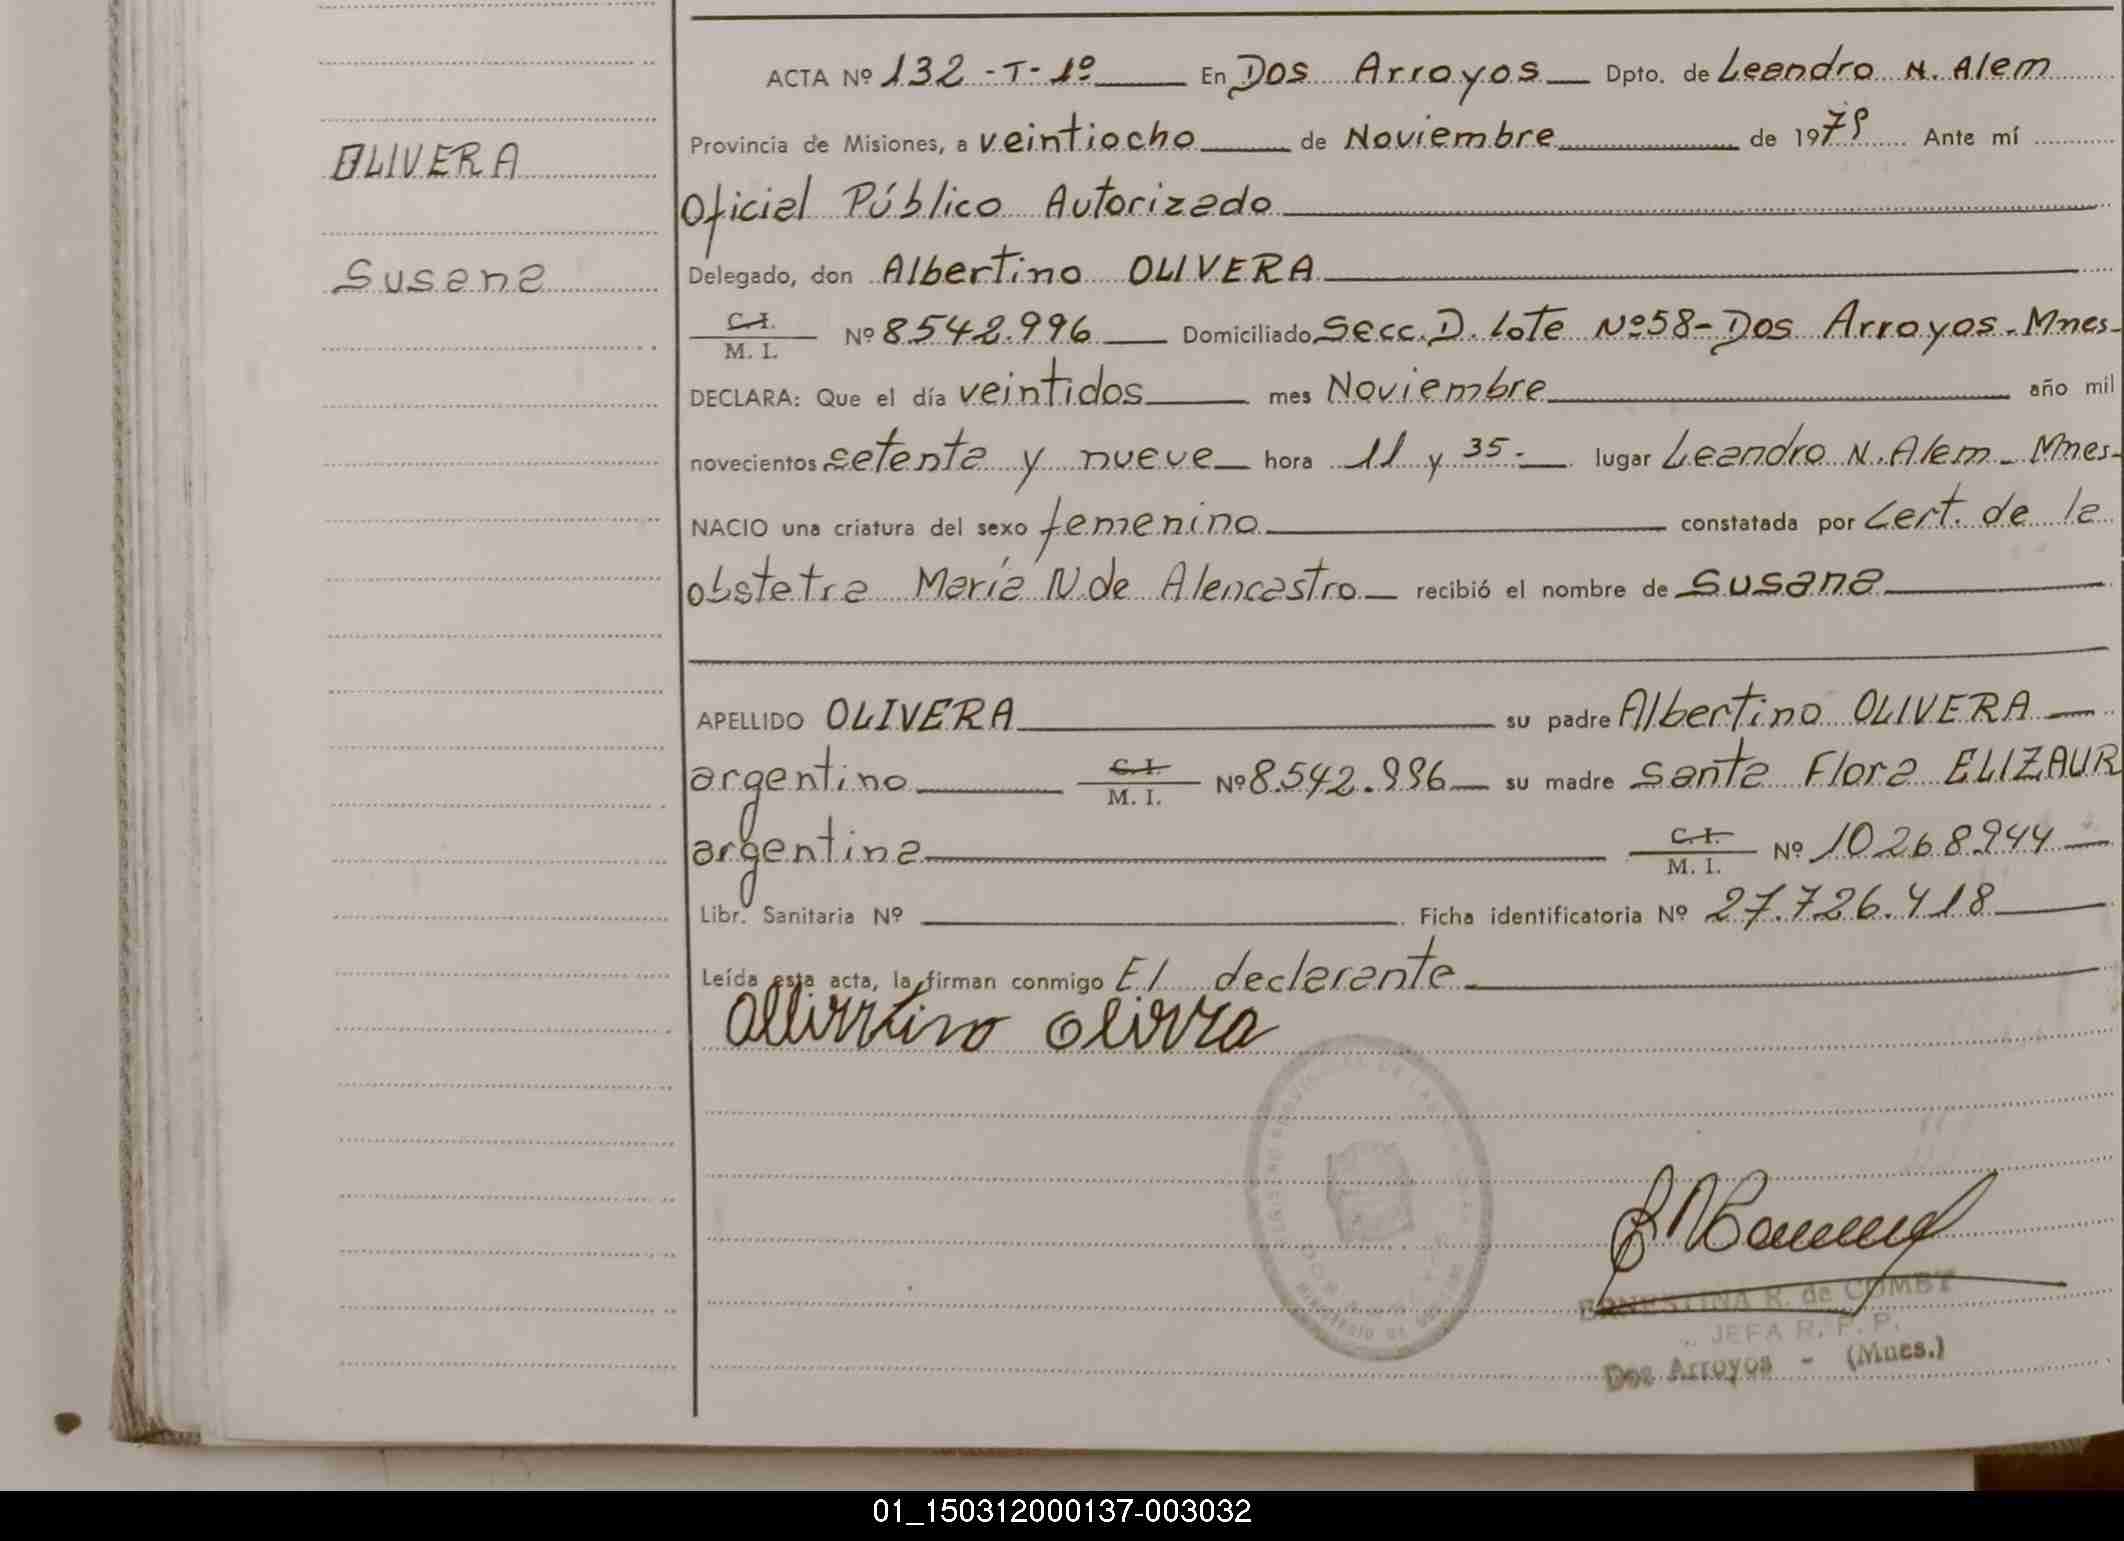 ACTA Nº 132 - T - 1º En Dos Arroyos Dpto. de Leandro N. Alem
Provincia de Misiones, a veintiocho de Noviembre de 1979 Ante mí
OLIVERA
Oficial Público Autorizado
Susana
Delegado, don Albertino OLIVERA
C.I.
M. I. Nº 8.542.996 Domiciliado Secc. D. lote Nº 58 - Dos Arroyos - Mnes-
DECLARA: Que el día veintidos mes Noviembre año mil
novecientos setenta y nueve hora 11 y 35.- lugar Leandro N. Alem - Mnes-
NACIO una criatura del sexo femenino constatada por Cert. de la
obstetra María N de Alencastro recibió el nombre de Susana
APELLIDO OLIVERA su padre Albertino OLIVERA
argentino C.I. M. I. Nº 8.542.996 su madre Santa Flora ELIZAUR
argentina C.I. M. I. Nº 10.268.944
Libr. Sanitaria Nº Ficha identificatoria Nº 27.726.418
Leída esta acta, la firman conmigo El declarante
ERNESTINA R. de COMBY
JEFA R. P. P.
Dos Arroyos - (Mnes.)
01_150312000137-003032